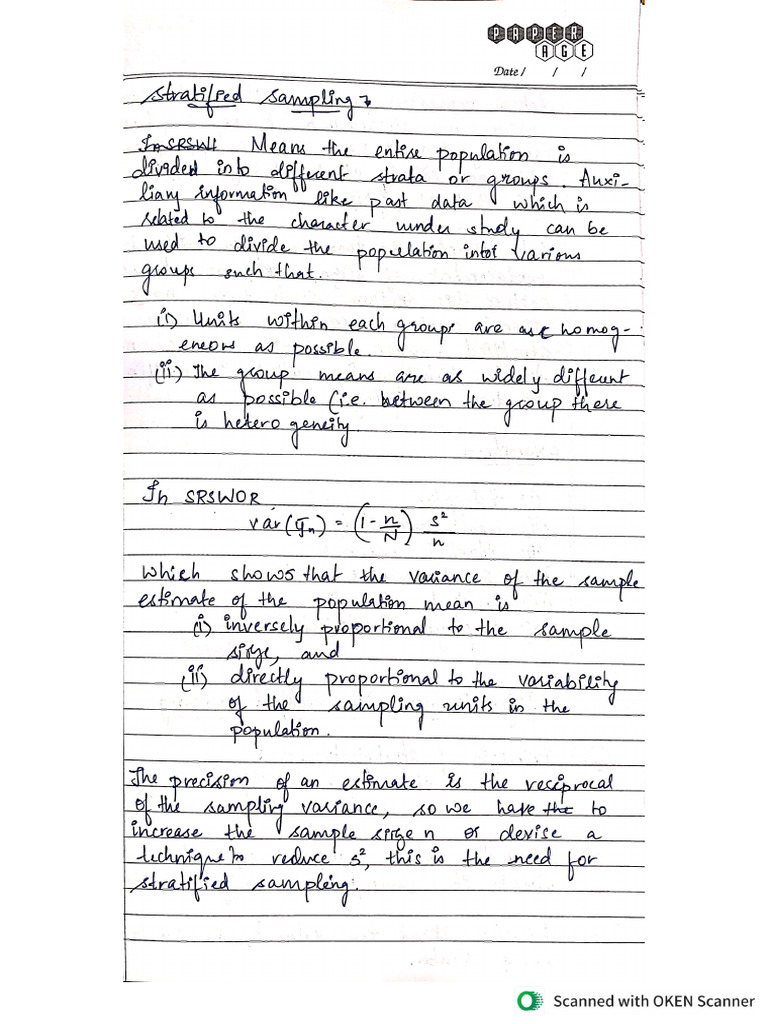 PAPER
AGE
Date / / /
Stratified Sampling →
In SRSWI Means the entire population is
divided into different strata or groups. Auxi-
liary information like past data which is
related to the character under study can be
used to divide the population into various
groups such that.
i) Units within each groups are as homog-
eneous as possible.
(ii) The group means are as widely different
as possible (i.e. between the group there
is hetero geneity.
In SRSWOR
var(ȳₙ) = (1 - n/N) s²/n
Which shows that the variance of the sample
estimate of the population mean is
(i) inversely proportional to the sample
size, and
(ii) directly proportional to the variability
of the sampling units in the
population.
The precision of an estimate is the reciprocal
of the sampling variance, so we have the to
increase the sample size n or devise a
technique to reduce s², this is the need for
stratified sampling.
Scanned with OKEN Scanner